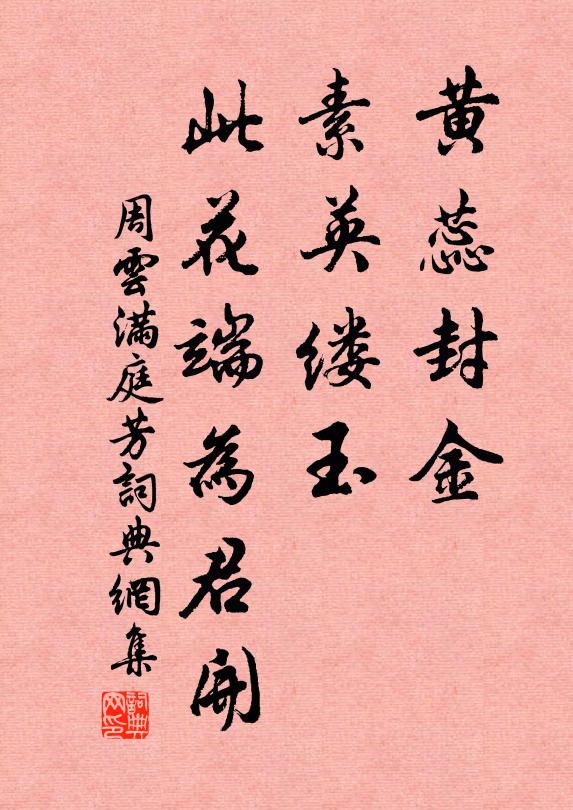 黄蕊封金
素英缕玉
此花端為君開
周雲滿庭芳詞典網集
詞典网印